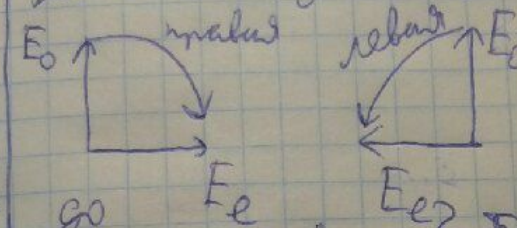 E₀ правая левая E₀
Eₑ Eₑ
до